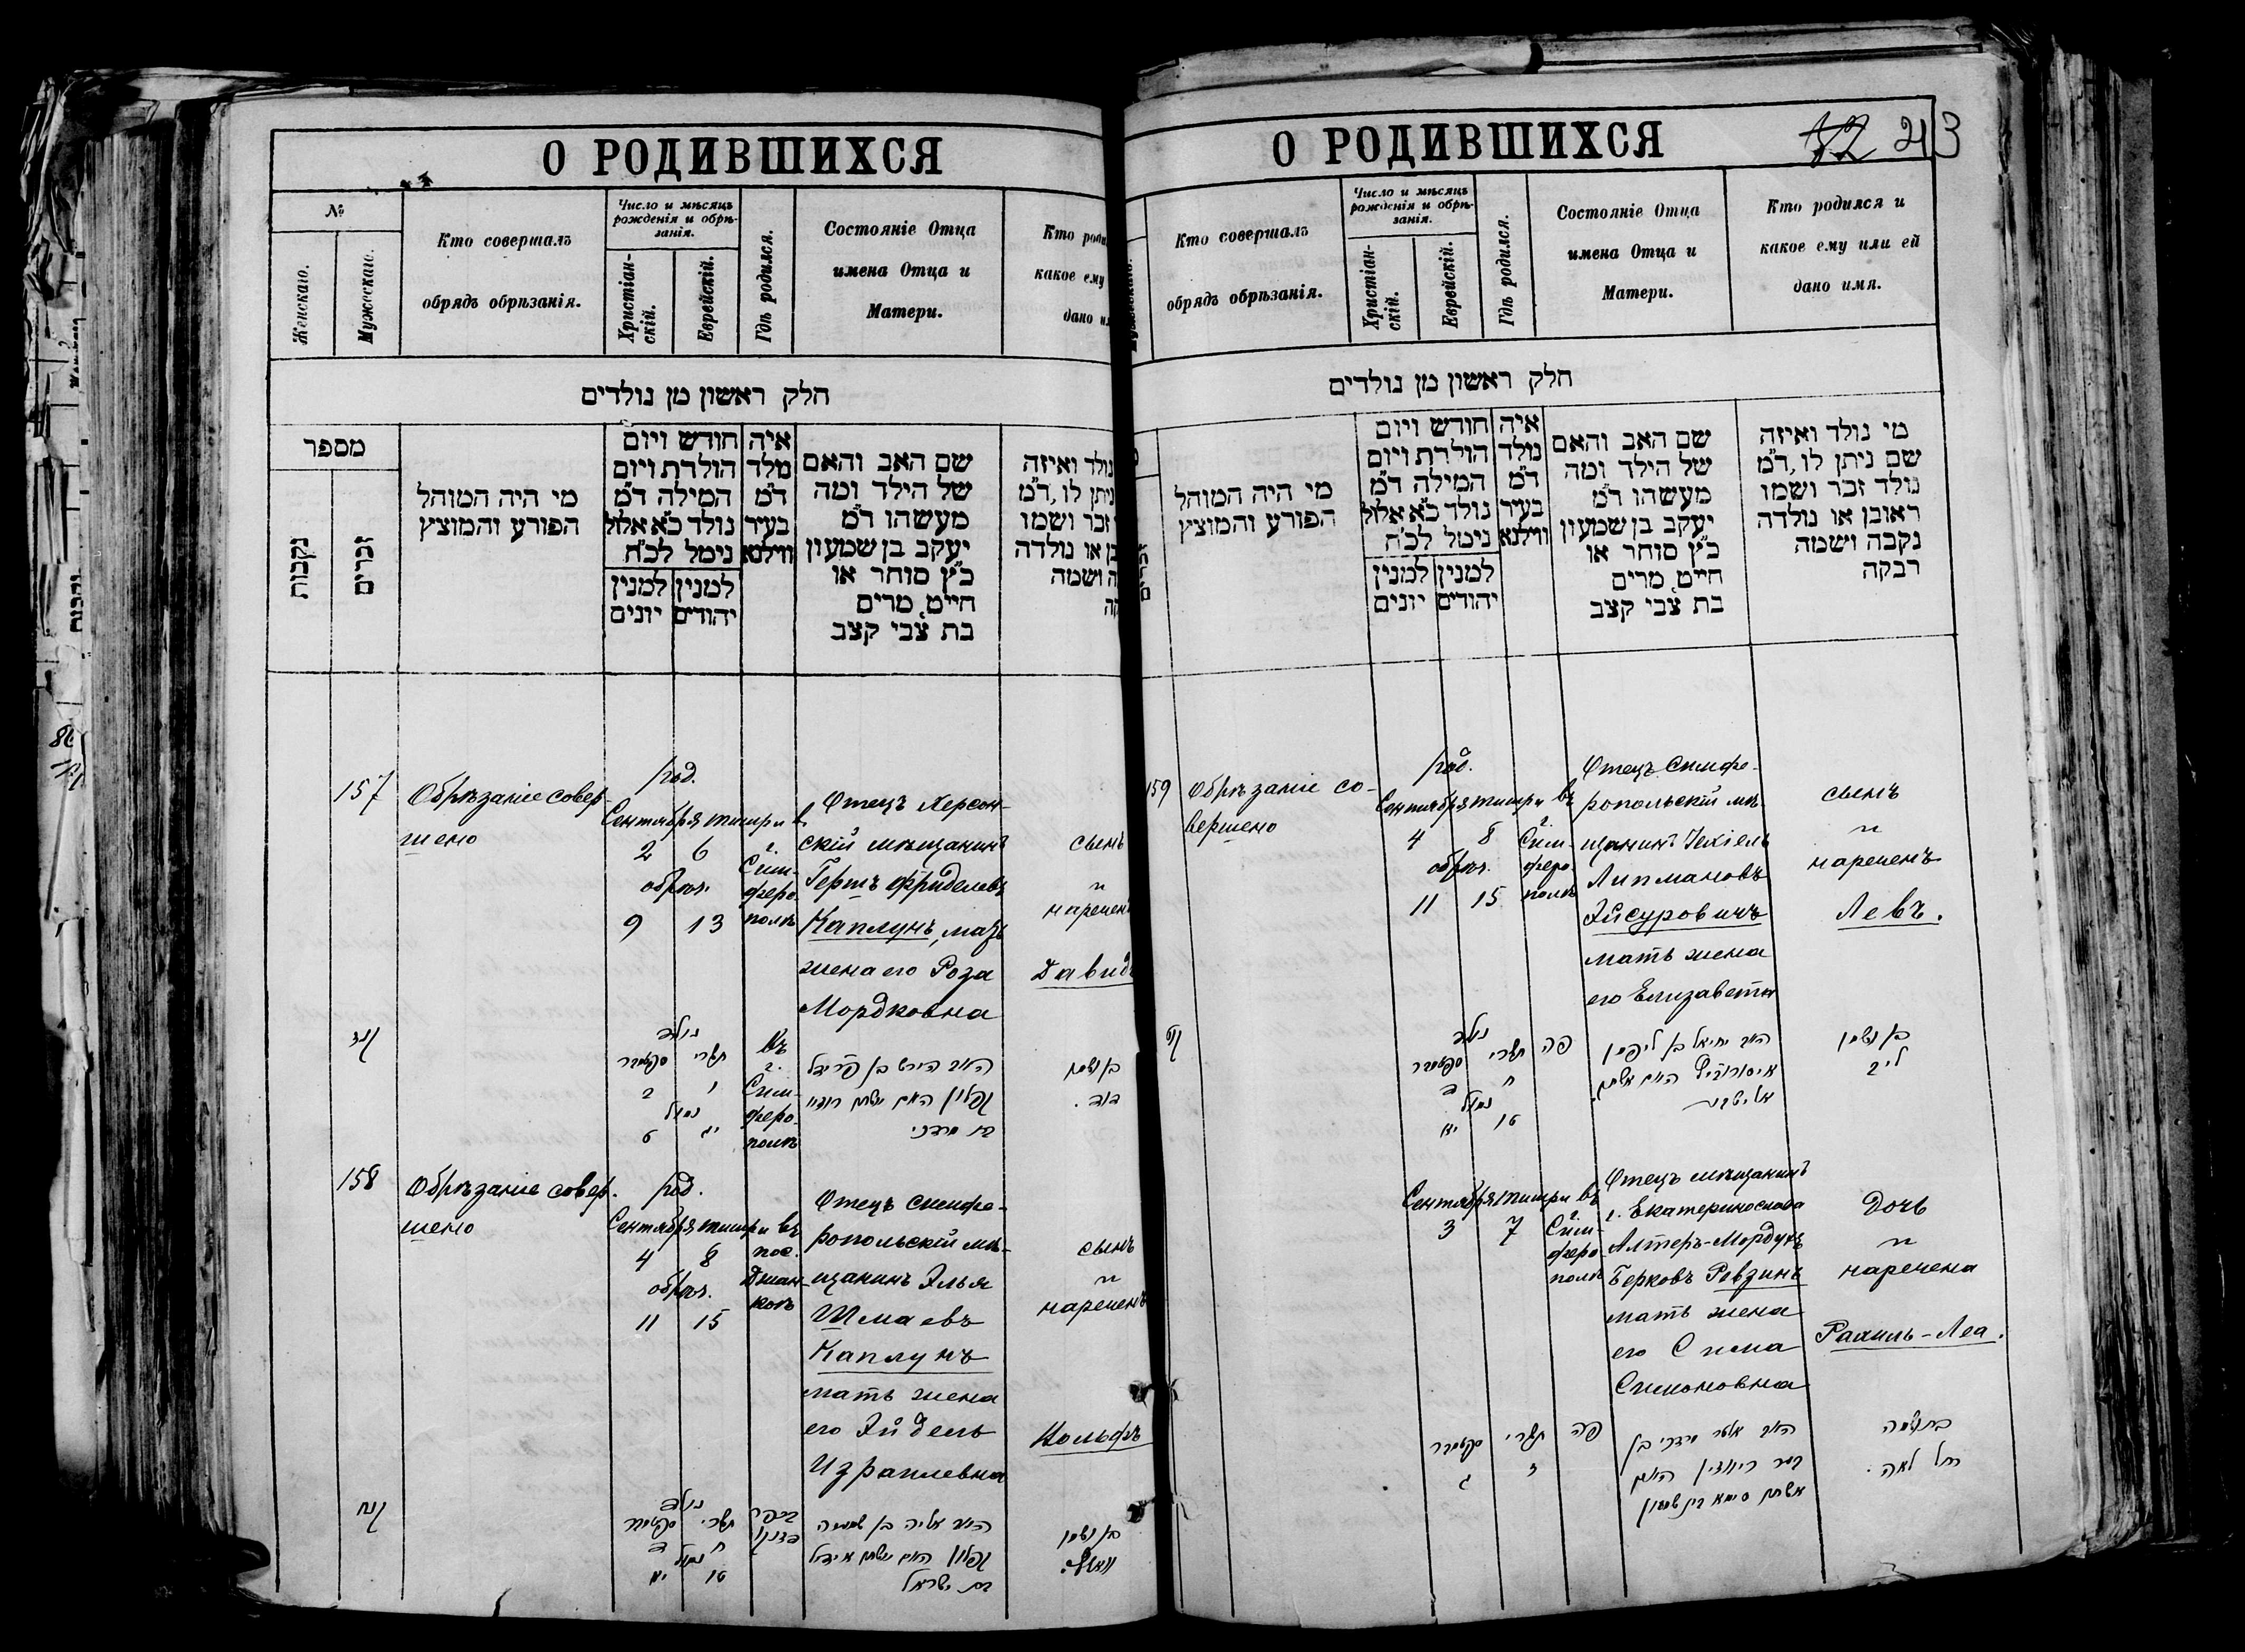 О РОДИВШИХСЯ
№
Женскаго.
Мужескаго.
Кто совершалъ
обрядъ обрѣзанія.
Число и мѣсяцъ
рожденія и обрѣ-
занія.
Христіан-
скій.
Еврейскій.
Гдѣ родился.
Состояніе Отца
имена Отца и
Матери.
Кто роди
какое ему
дано и
חלק ראשון מן נולדים
מספר
נקבות
זכרים
מי היה המוהל
הפורע והמוצץ
חודש ויום
הולדת ויום
המילה ד״מ
נולד כ״א אלול
נימל לכ״ח
למנין למנין
יהודים יונים
איה
מלד
ד״מ
בעיר
ווילנא
שם האב והאם
של הילד ומה
מעשהו ד״מ
יעקב בן שמעון
כ״ץ סוחר או
חייט, מרים
בת צבי קצב
נולד ואיזה
ניתן לו, ד״מ
זכר ושמו
בן או נולדה
ה ושמה
קה
157
Обрѣзаніе совер-
шено
род.
Сентября тишри в.
2 6
обрѣз.
9 13
г.
Сим-
феро-
полѣ
Отецъ Херсон-
скій мѣщанинъ
Гершъ Фриделевъ
Каплунъ, мать
жена его Роза
Мордковна
сынъ
и
нареченъ
Давидъ
קנז
נולד
תשרי סקטמבר
ו 2
נמול
יג 6
въ
г.
Сим-
феро-
полѣ
האב הירש בן פרידל
קפלון האם אשתו רוזי
בת מרדכי
בן ושמו
דוד.
158
Обрѣзаніе совер-
шено
род.
Сентября тишри въ
4 8
обрѣз.
11 15
пос.
Джан-
коѣ
Отецъ симфе-
ропольскій мѣ-
щанинъ Элья
Шмаевъ
Каплунъ
мать жена
его Эйдель
Израилевна
сынъ
и
нареченъ
Вольфъ
קנח
נולד
תשרי סקטמבר
ח ד
נמול
טו יא
בכפר
האב אליה בן שמעיה
קפלון האם אשתו איידיל
בת ישראל
בן ושמו
וואלף.
О РОДИВШИХСЯ
12 213
Мужескаго.
Кто совершалъ
обрядъ обрѣзанія.
Число и мѣсяцъ
рожденія и обрѣ-
занія.
Христіан-
скій.
Еврейскій.
Гдѣ родился.
Состояніе Отца
имена Отца и
Матери.
Кто родился и
какое ему или ей
дано имя.
חלק ראשון מן נולדים
זכרים
מי היה המוהל
הפורע והמוצץ
חודש ויום
הולדת ויום
המילה ד״מ
נולד כ״א אלול
נימל לכ״ח
למנין למנין
יהודים יונים
איה
נולד
ד״מ
בעיר
ווילנא
שם האב והאם
של הילד ומה
מעשהו ד״מ
יעקב בן שמעון
כ״ץ סוחר או
חייט, מרים
בת צבי קצב
מי נולד ואיזה
שם ניתן לו, ד״מ
נולד זכר ושמו
ראובן או נולדה
נקבה ושמה
רבקה
159
Обрѣзаніе со-
вершено
род.
Сентября тишри въ
4 8
обрѣз.
11 15
г.
Сим-
феро-
полѣ
Отецъ Симфе-
ропольскій мѣ-
щанинъ Іехіель
Липмановъ
Эйсуровичъ
мать жена
его Елизавета
сынъ
и
нареченъ
Левъ.
נולד
תשרי סקטמבר
ח ד
נמול
טו יא
פה
האב יחיאל בן ליפמן
איסורוביץ האם אשתו
אלישבע
בן ושמו
ליב
Сентября тишри въ
3 7
г.
Сим-
феро-
полѣ
Отецъ мѣщанинъ
г. Екатеринослава
Алтеръ-Мордухъ
Берковъ Ревзинъ
мать жена
его Сима
Симоновна
Дочь
и
наречена
Рахиль-Леа.
תשרי סקטמבר
ז ג
פה
האב אלטר מרדכי בן
בער ריוזין האם
אשתו סימא בת שמעון
בת ושמה
רחל לאה.